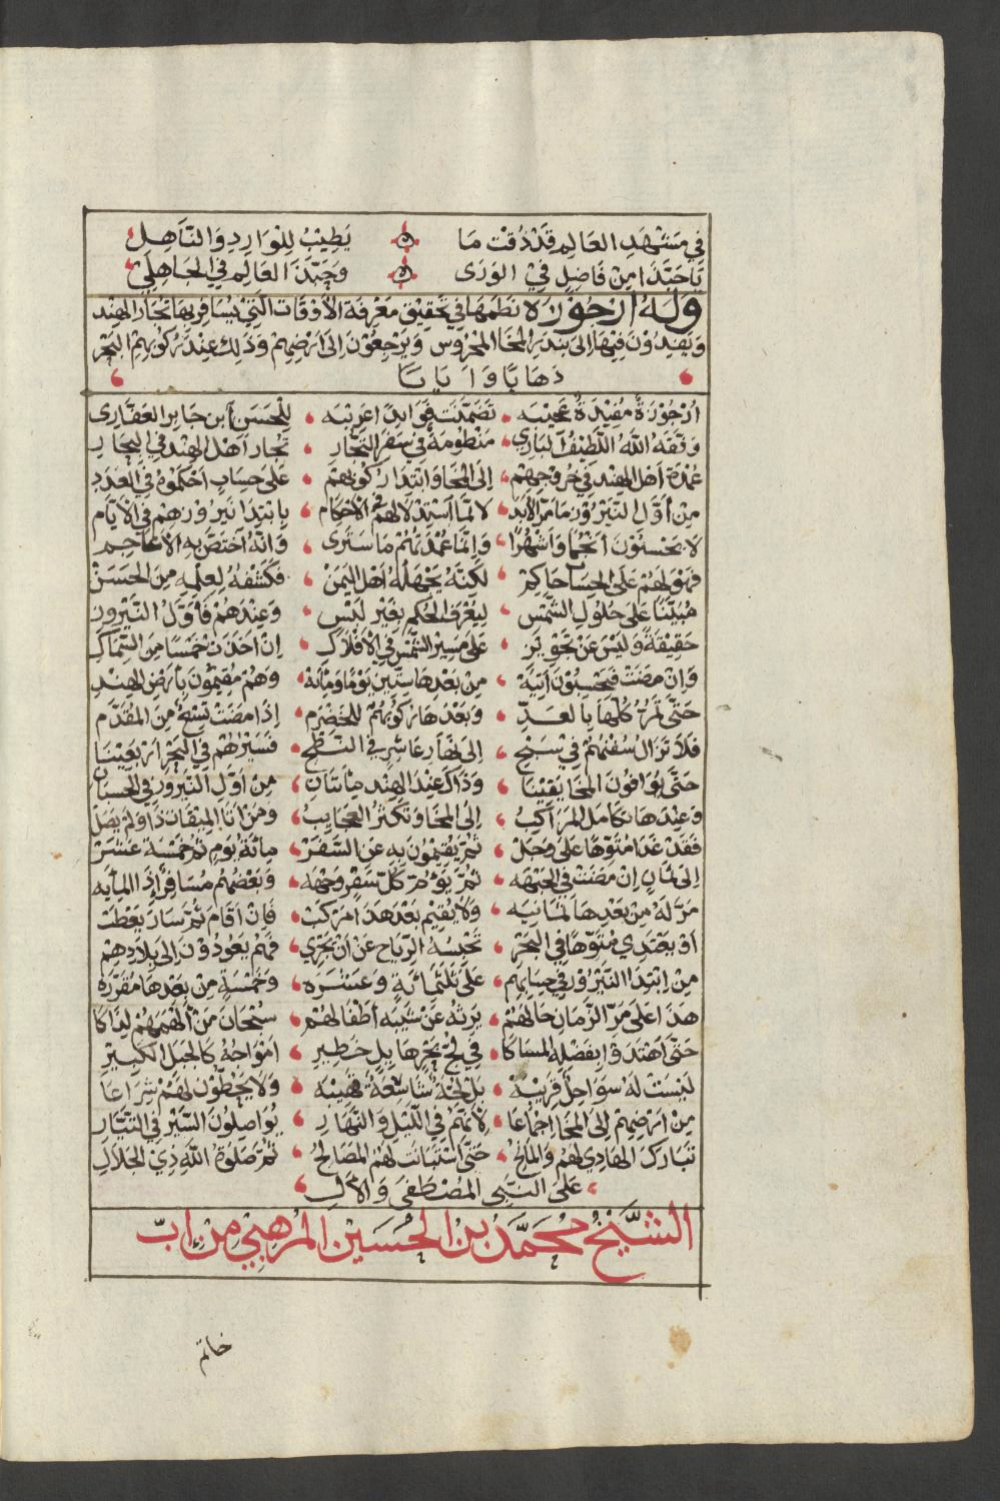 في مشهد العالم قد ذقت ما يطيب للوارد والناهل
يا حبذا من فاضل في الورى وحبذا العالم في الجاهلي
وله أرجوزة نظمها في تحقيق معرفة الأوقات التي يسافر بها تجار الهند
ويفدون فيها إلى بندر المخا المحروس ويرجعون إلى أرضهم وذلك عند ركوبهم البحر
ذهابا وإيابا
أرجوزة مفيدة عجيبه تضمنت فوايدا غريبه للحسن ابن جابر العفاري
وفقه الله اللطيف الباري منظومة في سفر التجار تجار أهل الهند في البحار
عمدة أهل الهند في خروجهم إلى المخا وابتدا ركوبهم على حساب أحكموه في العدد
من أول النيروز ما مر الأبد لا نما استدلالهم في الأحكام بابتدا نيروزهم في الأيام
لا يحسبون أنجما وأشهرا وإنما عمدتهم ما سترى وأنه اختص به الأعاجم
فهو لهم على الحساب حاكم لكنه يجهله أهل اليمن فكشفه لعلمه من الحسن
مبينا على حلول الشمس ليعرف الحكم بغير لبس وعندهم فأول النيروز
حقيقة وليس عن تجويز على مسير الشمس في الأفلاك إن أخذت خمسا من السماك
وإن مضت فيحسبون آتيه من بعدها ستين يوما ومائه وهم مقيمون بأرض الهند
حتى تمر كلها بالعد وبعدها ركوبهم للخضرم إذا مضت تسع من المقدم
فلا تزال سفنهم في سبح إلى نهار عاشر في النطح فسيرهم في البحر أربعينا
حتى يوافون المخا يقينا وذاك عند الهند مائتان من أول النيروز في الحسبان
وعندها تكامل المراكب إلى المخا وتكثر العجايب ومن أتا الميقات ذا ولم يصل
فقد غدا متوها على وجل ثم يقيمون به عن السفر مائة يوم ثم خمسة عشر
إلى ثمان إن مضت في الجبهه ثم يؤم كل سفر وجهه وبعضهم مسافر إذا المايه
مر له من بعدها ثمانيه ولا يقيم بعد هذا مركب فإن أقام ثم سار يعطب
أو يغتدي متوها في البحر تحبسه الرياح عن أن يجري فهم يعودون إلى بلادهم
من ابتدا النيروز في حسابهم على ثلثمائة وعشره وخمسة من بعدها مقرره
هذا على مر الزمان حالهم يرثه عن شيبه أطفالهم سبحان من ألهمهم لذاكا
حتى اهتدوا بفضله المساكا في لج بحر هايل خطير أمواجه كالجبل الكبير
ليست له سواحل قريبة بل لجة شاسعة مهيبه ولا يحطون لهم شراعا
من أرضهم إلى المخا إجماعا لأنهم في الليل والنهار يواصلون السير في التيار
تبارك الهادي لهم والمانح حتى استبانت لهم المصالح ثم صلوة الله ذي الجلال
على النبي المصطفى والآل
الشيخ محمد بن الحسين المرهبي من اب
خاتم